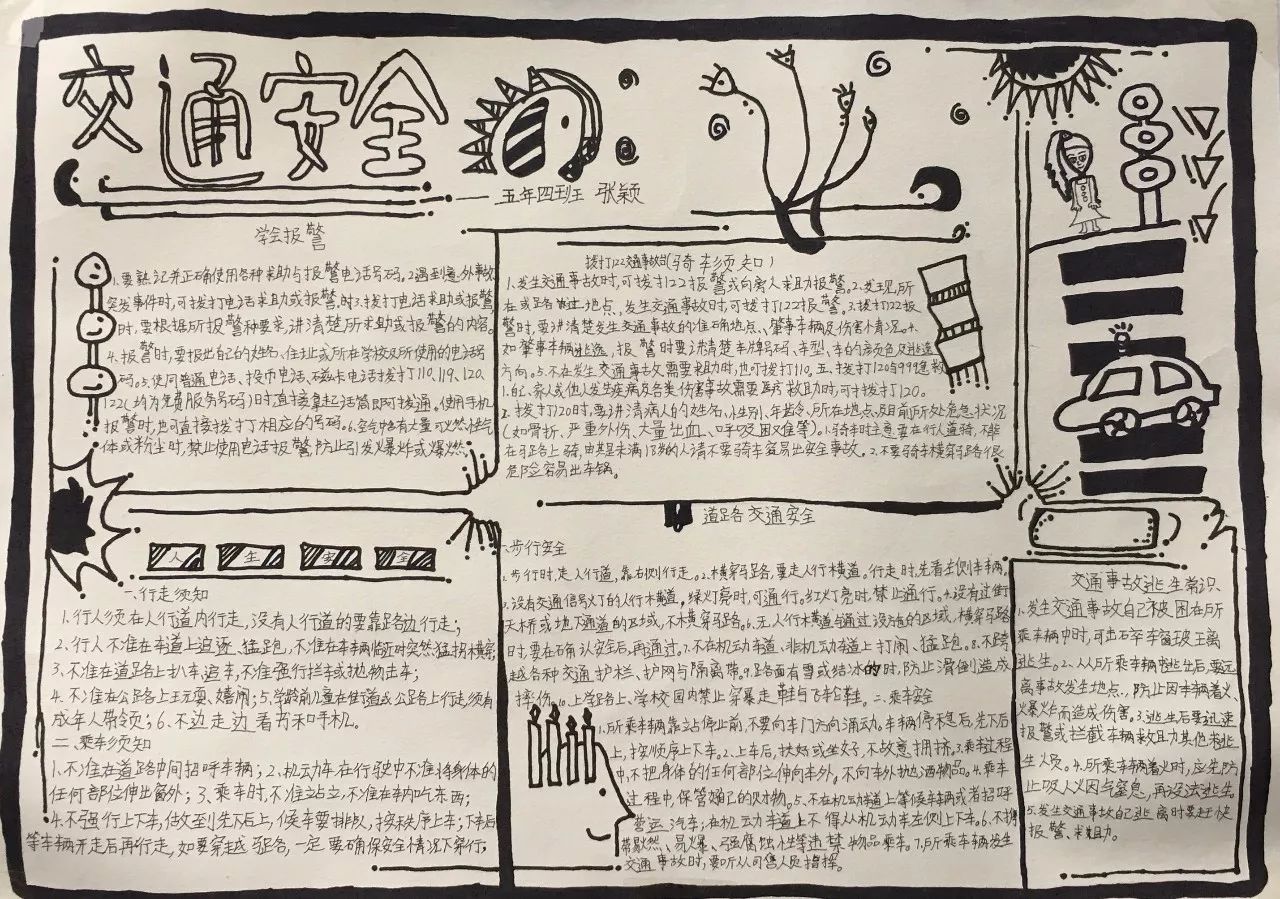 交通安全
五年四班 张颖
学会报警
1.要熟记并正确使用各种求助与报警电话号码。2.遇到意外事故
突发事件时,可拨打电话求助或报警,时3.拨打电话求助或报警
时,要根据所报警种要求,讲清楚所求助或报警的内容。
4.报警时,要报出自己的姓名、住址或所在学校及所使用的电话号
码。5.使用普通电话、投币电话、磁卡电话拨打110、119、120、
122(均为免费服务号码)时直接拿起话筒即可拨通。使用手机
报警时,也可直接拨打相应的号码。6.空气中有大量可燃性气
体或粉尘时,禁止使用电话报警,防止引发爆炸或爆燃。
拨打122交通事故台(骑车须知)
1.发生交通事故时,可拨打122报警或向离人求助报警。2.发现所
在或路过地点、发生交通事故时,可拨打122报警。3.拨打122报
警时,要讲清楚发生交通事故的准确地点、肇事车辆及伤害情况。4.
如肇事车辆逃逸,报警时要讲清楚车牌号码、车型、车的颜色及逃逸
方向。5.不在发生交通事故需要求助时,也可拨打110。五、拨打120与99急救
1.自己、家人或他人发生疾病及各类伤害事故需要医疗救助时,可拨打120。
2.拨打120时,要讲清病人的姓名、性别、年龄、所在地点、目前所处危急状况
(如骨折、严重外伤、大量出血、呼吸困难等)。1.骑车时注意要在行人道骑,不能
在马路上骑,由其是未满18岁的人请不要骑车容易出安全事故。2.不要骑车横穿马路很
危险容易出车祸。
人 生 安 全
一、行走须知
1.行人须在人行道内行走,没有人行道的要靠路边行走;
2.行人不准在车道上追逐、猛跑,不准在车辆临近时突然猛拐横穿;
3.不准在道路上扒车、追车,不准强行拦车或抛物击车;
4.不准在公路上玩耍、嬉闹;5.学龄前儿童在街道或公路上行走,须有
成年人带领;6.不边走边看书和手机。
二、乘车须知
1.不准在道路中间招呼车辆;2.机动车在行驶中不准将身体的
任何部位伸出窗外;3.乘车时,不准站立,不准在车内吃东西;
4.不强行上下车,做到先下后上,候车要排队,按秩序上车;下车后
等车辆开走后再行走,如要穿越马路,一定要确保安全情况下穿行;
道路交通安全
一、步行安全
1.步行时,走人行道,靠右侧行走。2.横穿马路,要走人行横道。行走时,先看左侧车辆。
3.没有交通信号灯的人行横道,绿灯亮时,可通行。红灯亮时,禁止通行。4.没有过街
天桥或地下通道的区域,不横穿马路。6.无人行横道与通过设施的区域,横穿马路
时,要在确认安全后,再通过。7.不在机动车道、非机动车道上打闹、猛跑。8.不跨
越各种交通护栏、护网与隔离带。9.路面有雪或结冰的时,防止滑倒造成
摔伤。10.上学路上、学校园内禁止穿暴走鞋与飞轮鞋。二、乘车安全
1.所乘车辆靠站停业前,不要向车门方向涌动。车辆停稳后,先下后
上,按顺序上下车。2.上车后,扶好或坐好,不故意拥挤。3.乘车过程
中,不把身体的任何部位伸向车外。不向车外抛洒物品。4.乘车
过程中,保管好自己的财物。5.不在机动车道上等候车辆或者招呼
营运汽车;在机动车道上不得从机动车左侧上下车。6.不携
带易燃、易爆、强腐蚀性等违禁物品乘车。7.所乘车辆发生
交通事故时,要听从司售人员指挥。
交通事故逃生常识
1.发生交通事故自己被困在所
乘车辆中时,可击碎车窗玻璃
逃生。2.从所乘车辆逃出后,要远
离事故发生地点,防止因车辆着火、
爆炸而造成伤害。3.逃生后要迅速
报警或拦截车辆救助其他未逃
生人员。4.所乘车辆着火时,应先防
止吸入烟气窒息,再设法逃生。
5.发生交通事故自己逃离时要赶快
报警,求助。